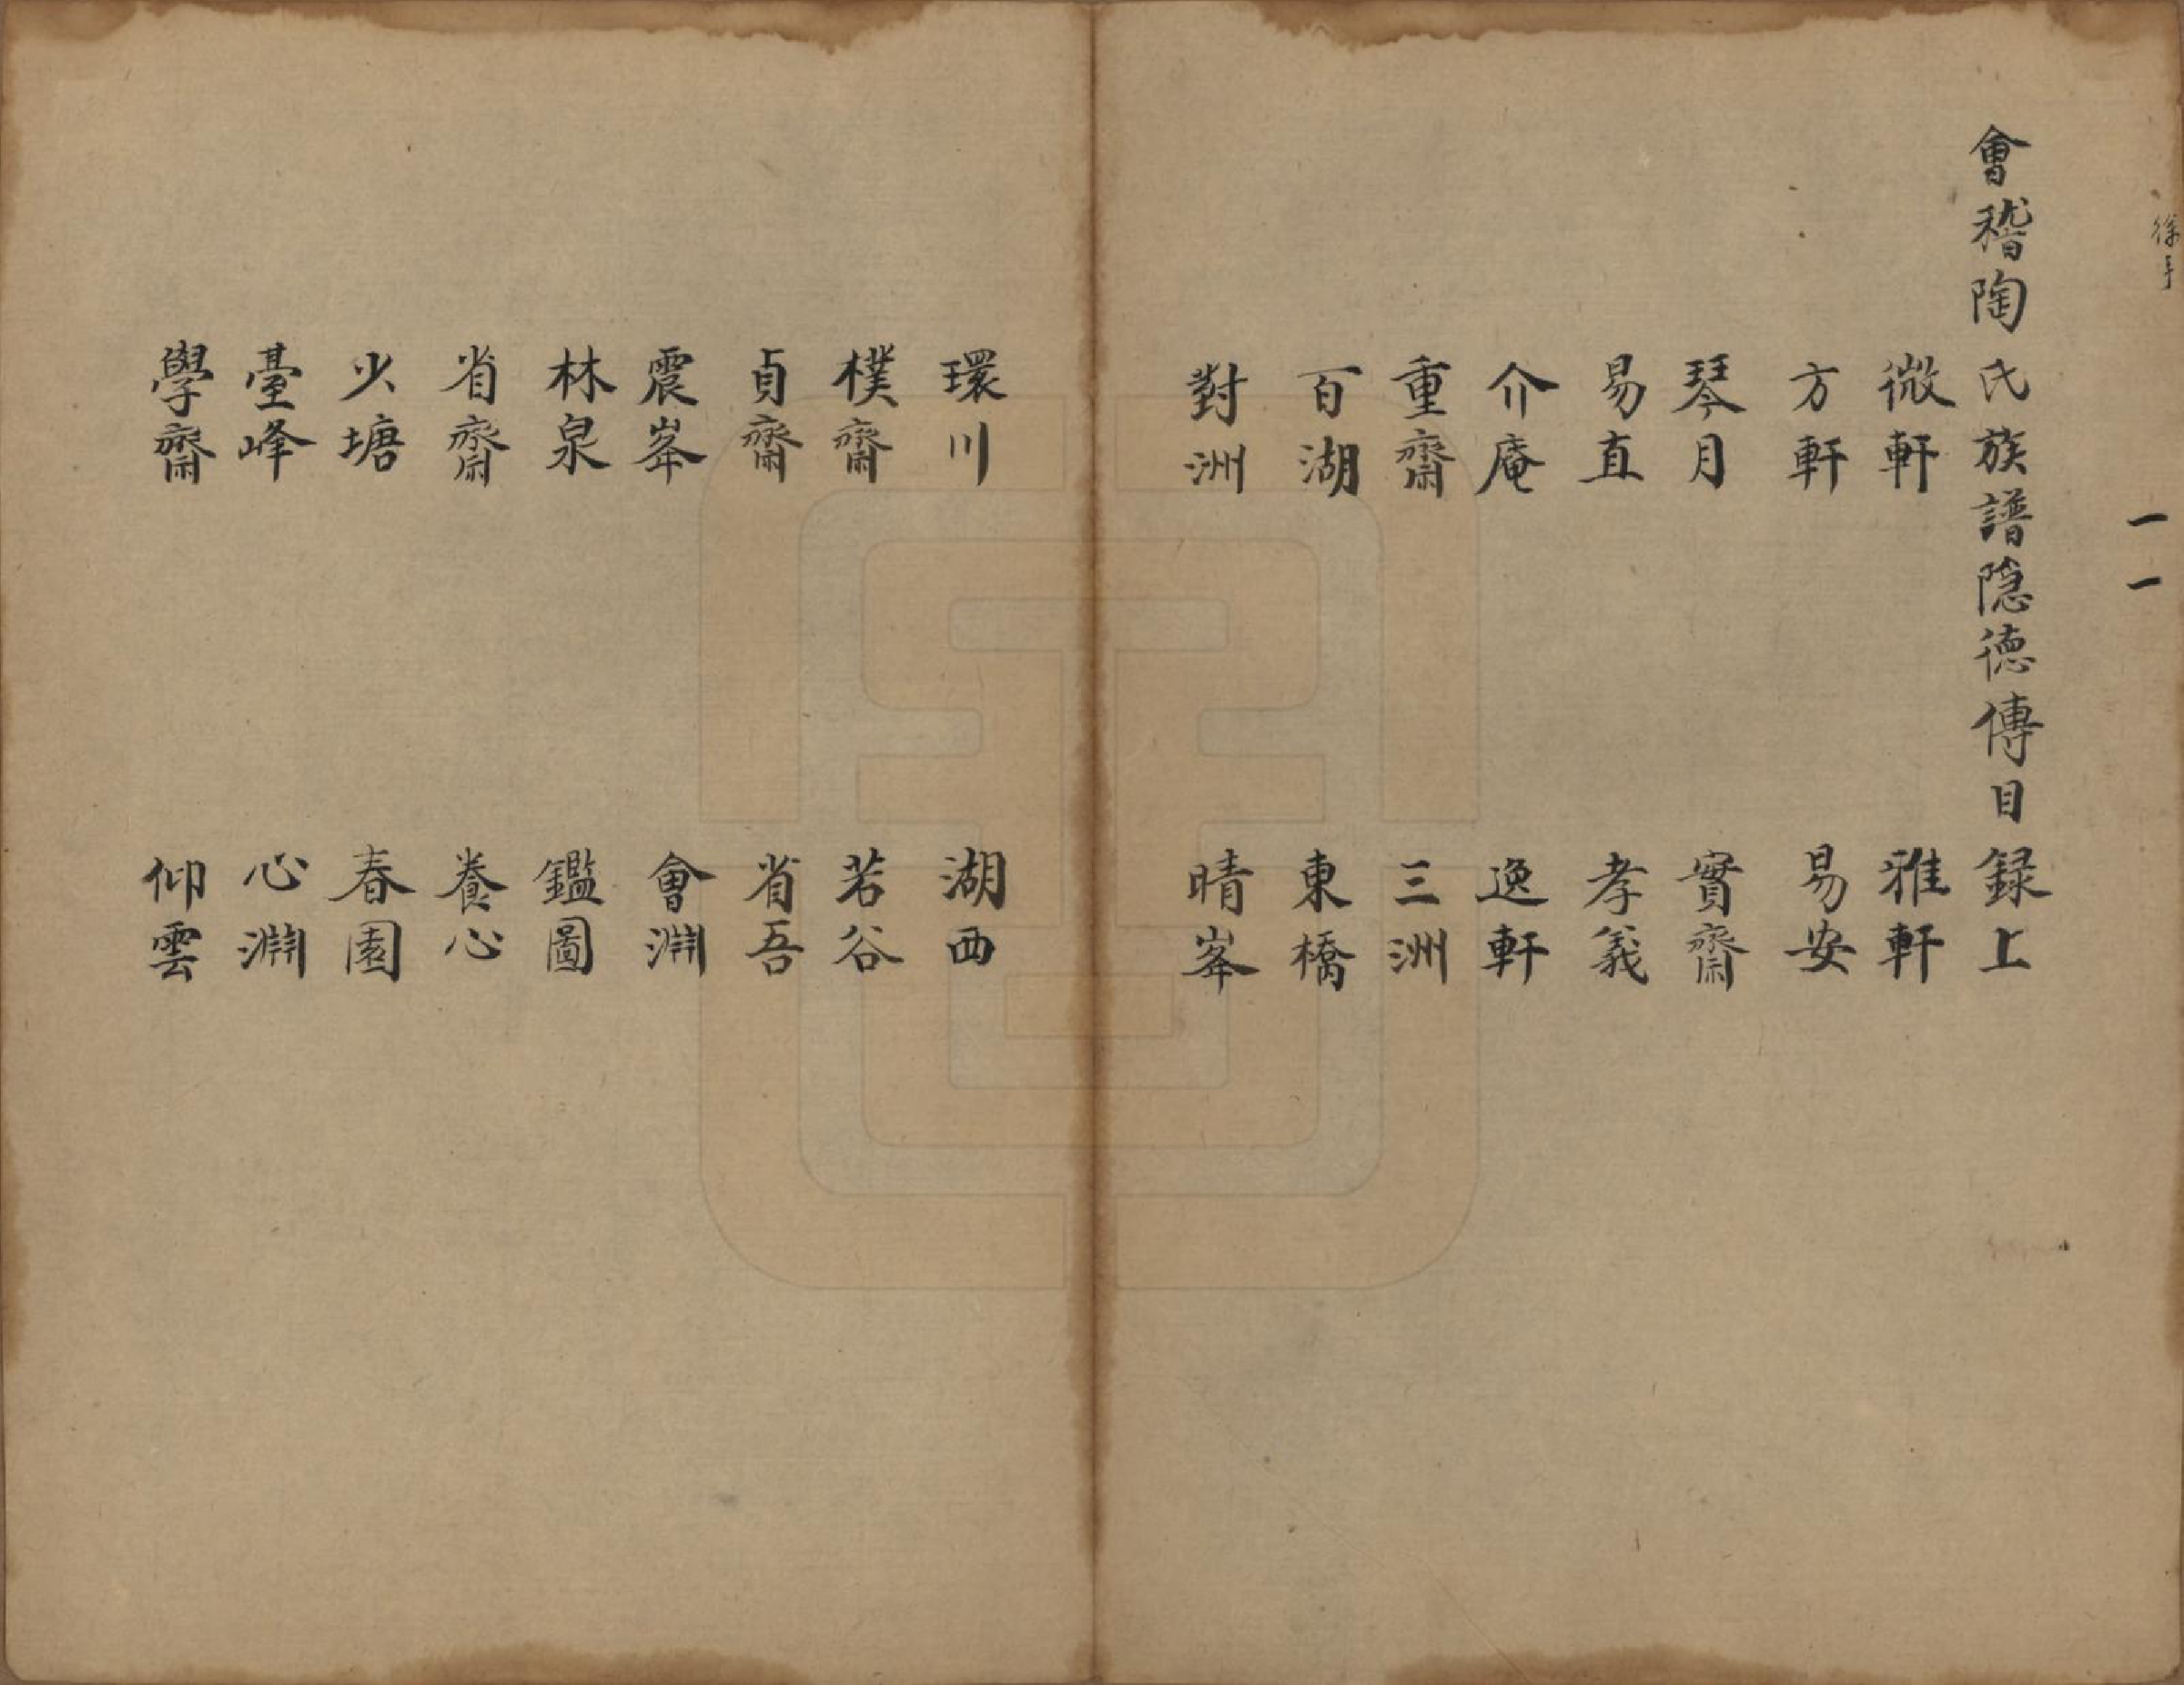 一一
會稽陶氏族譜隐德傳目録上
微軒　雅軒
方軒　易安
琴月　實齋
易直　孝義
介庵　逸軒
重齋　三洲
百湖　東橋
對洲　晴峯
環川　湖西
樸齋　若谷
貞齋　省吾
震峯　會淵
林泉　鑑圖
省齋　養心
少塘　春園
臺峰　心淵
學齋　仰雲